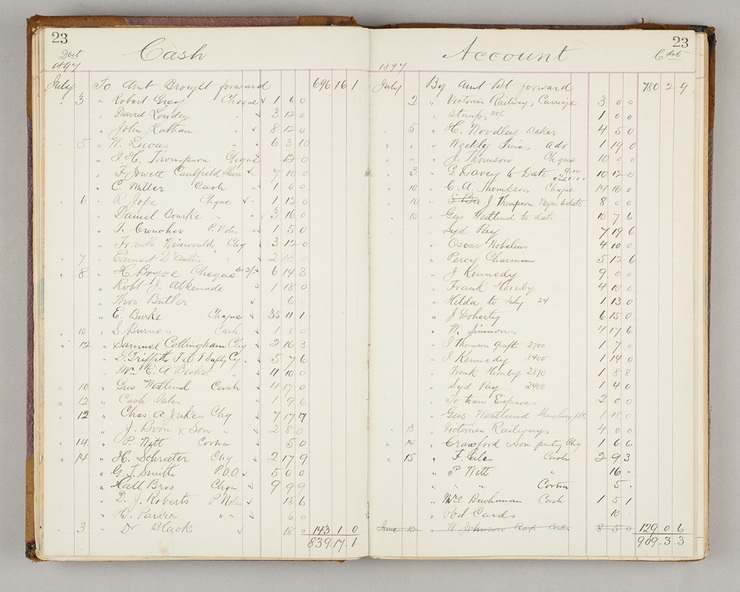 23
Cash
1897
July To Amt Brought forward 696 16 1
3 " Robert Grey Cheque 1 6 0
" David Lowdey " 3 12 0
" John Latham " 8 12 0
5 " W. Lucas " 6 3 10
" J. H. Thompson Cheque
" F. Jewitt Caulfield 7 10 0
" C Miller Cash 1 0 0
6 " R Jope Cheque 1 12 0
" Daniel Bourke " 3 16 0
" T. Croucher P. Note 1 5 0
" Frank Chq 3 12 0
7 " Earnest D
8 " H Boyce Cheque 6 14 3
" Robt J. Alkenade 1 18 0
" Thos Butler 6 -
" E. Burke Cheque 35 11 1
10 " S Burnes Cash 1 0 0
12 " Samuel Cottingham Chq 2 16 3
" J. Griffiths Chq 5 7 6
" Mrs E. A Becket 11 10 0
10 " Gus Wetlund Cash 4 17 0
12 " Cash Sales 1 9 6
12 " Chas A Jukes Chq 7 17 7
" J. Boon & Son " 2 8 0
14 " P. Witt Contra 5 0
14 " H. Schreter Chq 2 17 9
" G. T. Smith P.O.O. 5 0 0
" Hall Bros Chqn 9 9 9
" D. J. Roberts P Note 15 6
" H. Parker " " 6 0
3 " Dr Black 18 0 143 1 0
839 17 1
23
Account
1897
July By Amt Dt forward 780 2 9
2 " Victorian Railways Carriage 3 0 0
" Stamps 1 0 0
5 " H. Woodley Baker 4 5 0
" " Weekly Times Adv 1 19 0
" " J. Thomson Cheque 10 0 0
3 " G Davey to Date 10 12 0
10 " C. A. Thompson Cheque 14 16 0
10 " J Thompson Wages to date 8 0 0
10 " Gus Westlund to date 10 7 6
" Syd Ray 7 19 6
" Oscar Nobelius 4 10 0
" Percy Chairman 5 12 6
" J. Kennedy 9 0 0
" Frank Hornby 4 10 0
" Hilda to July 24 1 13 0
" J Doherty 6 15 0
" W. Simmons 4 17 6
" J Thomson Graft 2700 1 7 0
" J Kennedy 3400 1 14 0
" Frank Hornby 2870 1 8 8
" Syd Ray 2400 1 4 0
" To town Expenses 2 0 0
" Gus Westlund
13 " Victorian Railways 4 0 0
14 " Crawford & Son Chq 1 6 6
15 " F. Cole Cash 2 9 3
" P Witt " 16 -
" " Contra 5 -
" Mrs Buchanan Cash 1 5 1
" Post Cards 10 -
June " Johnson 8 5 0 129 0 6
909 3 3